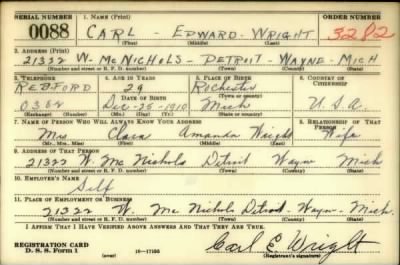 SERIAL NUMBER 1. NAME (Print) ORDER NUMBER
0088 CARL - EDWARD - WRIGHT 3282
(First) (Middle) (Last)
2. ADDRESS (Print)
21322 W. McNICHOLS - DETROIT - WAYNE - MICH
(Number and street or R. F. D. number) (Town) (County) (State)
3. TELEPHONE 4. AGE IN YEARS 5. PLACE OF BIRTH 6. COUNTRY OF CITIZENSHIP
REDFORD 29 Rochester
DATE OF BIRTH (Town or county)
0362 Dec-25-1910 Mich U.S.A.
(Exchange) (Number) (Mo.) (Day) (Yr.) (State or country)
7. NAME OF PERSON WHO WILL ALWAYS KNOW YOUR ADDRESS 8. RELATIONSHIP OF THAT PERSON
Mrs Clara Amanda Wright Wife
(Mr., Mrs., Miss) (First) (Middle) (Last)
9. ADDRESS OF THAT PERSON
21322 W. Mc Nichols Detroit Wayne Mich
(Number and street or R. F. D. number) (Town) (County) (State)
10. EMPLOYER'S NAME
Self
11. PLACE OF EMPLOYMENT OR BUSINESS
21322 W. Mc Nichols Detroit Wayne Mich.
(Number and street or R. F. D. number) (Town) (County) (State)
I AFFIRM THAT I HAVE VERIFIED ABOVE ANSWERS AND THAT THEY ARE TRUE.
REGISTRATION CARD
D. S. S. Form 1 16-17105 Carl E. Wright
(Registrant's signature)